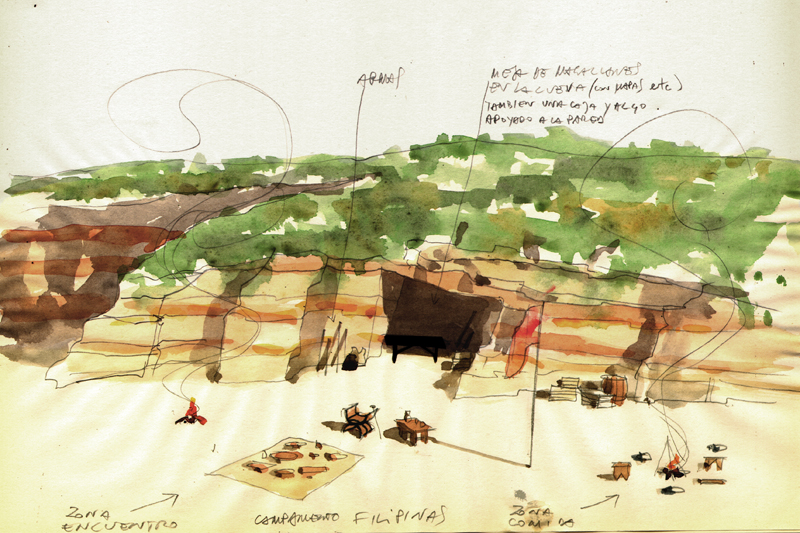 ARMAS
MESA DE MAGALLANES
EN LA CUEVA (con MAPAS etc)
TAMBIEN UNA CAJA Y ALGO.
APOYADO A LA PARED
ZONA
ENCUENTRO
CAMPAMENTO FILIPINAS
ZONA
COMIDA